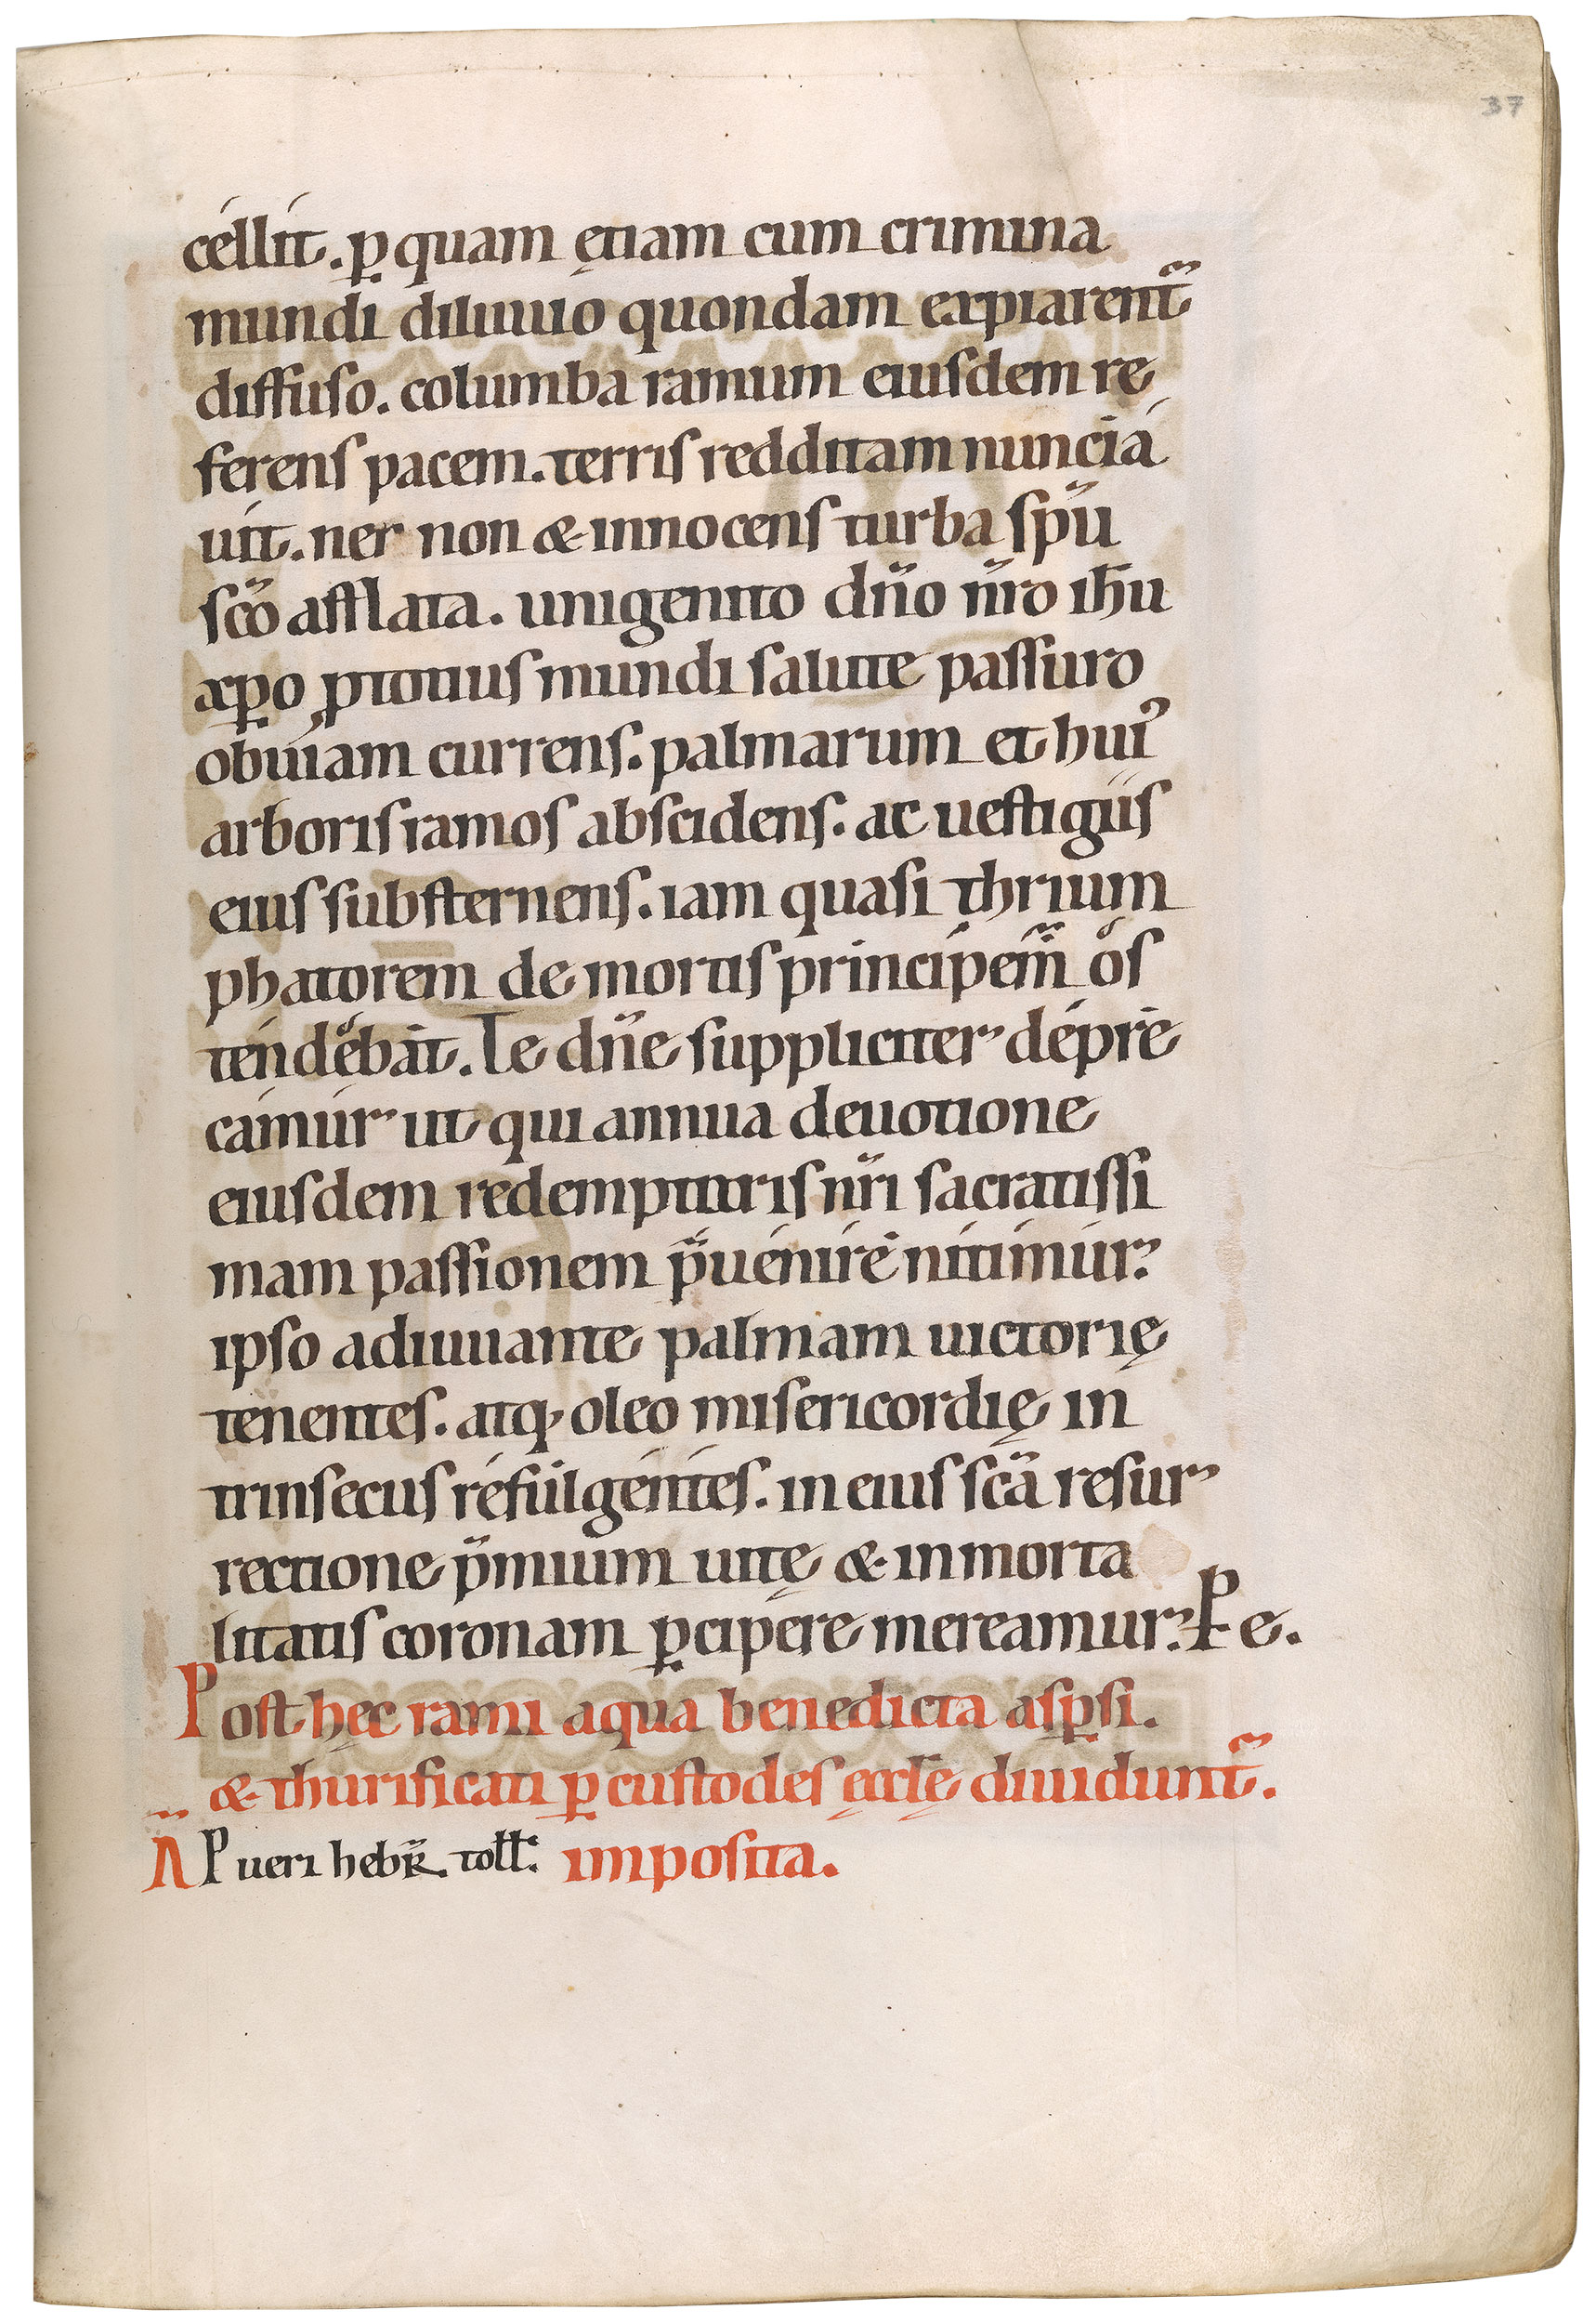 37
cellit. ꝑ quam ętiam cum crimina
mundi diluuio quondam expiarent̃
diffuso. columba ramum eiusdem re
ferens pacem. terris redditam nuncia
uit. ner non & innocens turba sp̄u
sc̄o afflata. unigenito dn̄o nr̄o ih̄u
xp̄o ꝓ totius mundi salute passuro
obuiam currens. palmarum et huiꝰ
arboris ramos abscidens. ac uestigiis
eius substernens. iam quasi thrium
phatorem de mortis principem̄ os
tendebat. Te dn̄e suppliciter depre
camur ut qui annua deuotione
eiusdem redemptoris nr̄i sacratissi
mam passionem p̄uenire nitimur.
ipso adiuuante palmam uictorię
tenentes. atq; oleo misericordię in
trinsecus refulgentes. in eius sc̄a resur
rectione p̄mium uitę & inmorta
litatis coronam ꝑcipere mereamur. P e.
Post hęc rami aqua benedicta asꝑsi.
& thurificati ꝑ custodes ęcl̄ę diuidunt̃.
A Pueri hebr̄. toll̄. imposita.